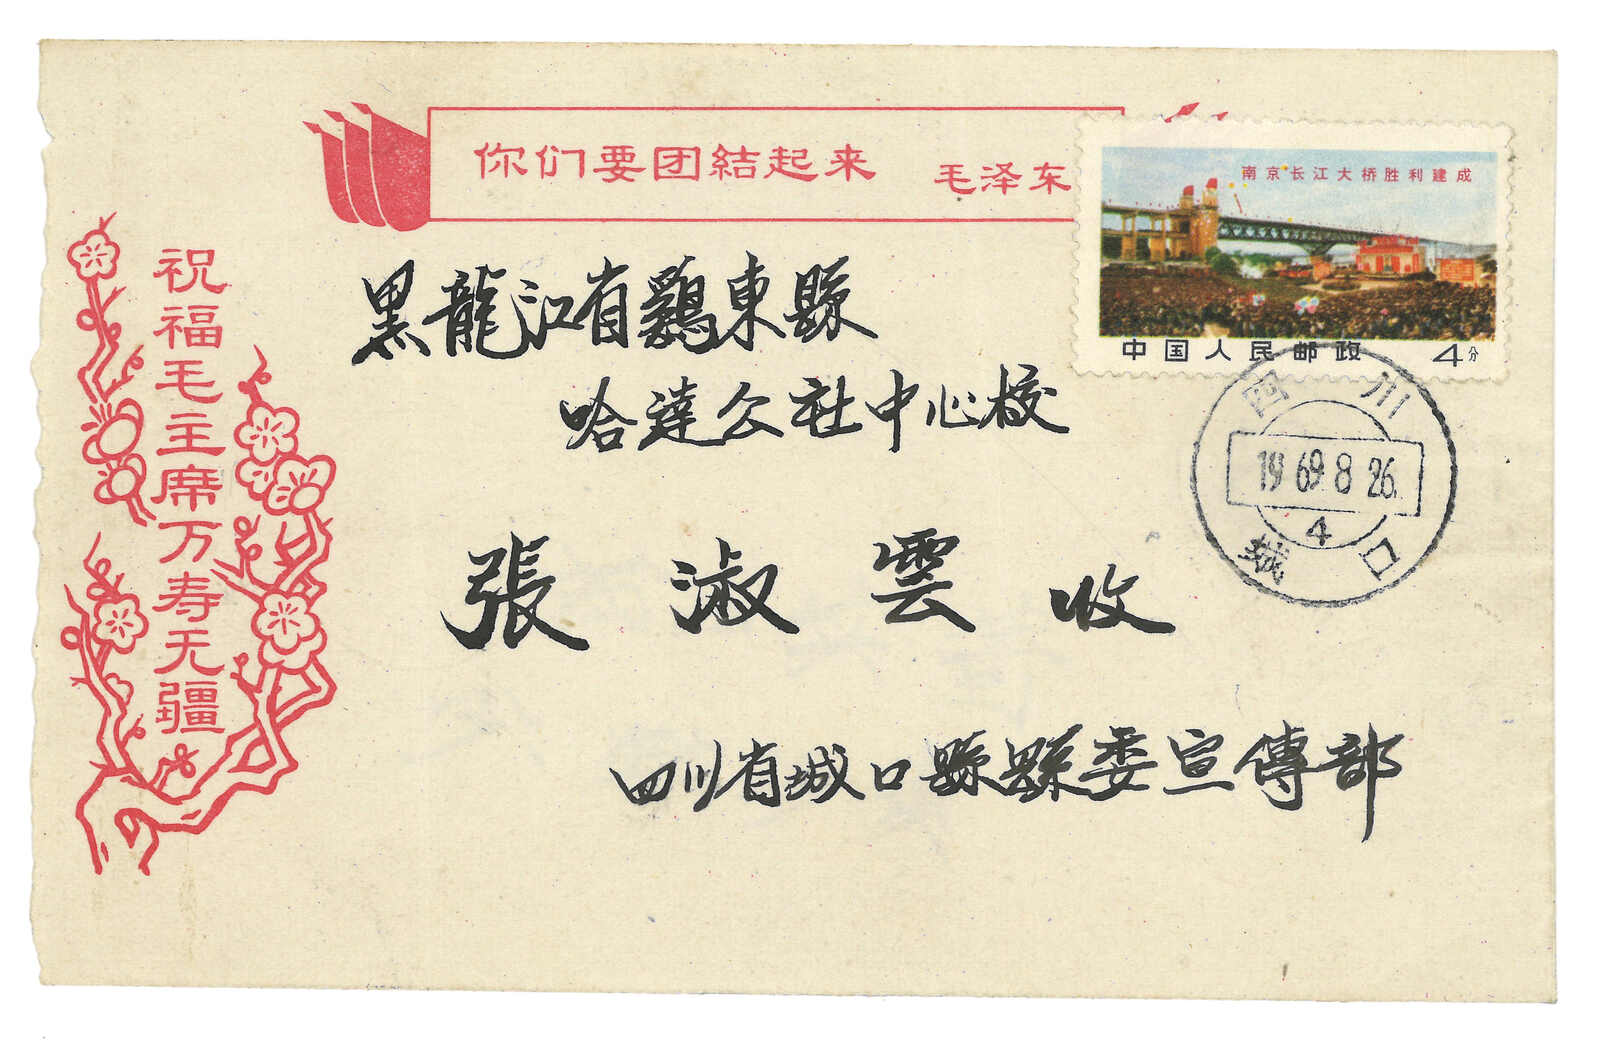 你们要团結起来 毛泽东
南京长江大桥胜利建成
中国人民邮政 4分
祝福毛主席万寿无疆
黑龍江省鷄東縣
哈達公社中心校
張淑雲收
四川省城口縣縣委宣傳部
四川
1969.8.26.
4
城口